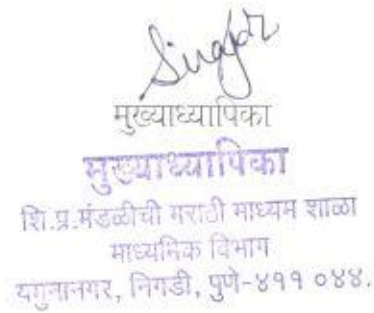 मुख्याध्यापिका
मुख्याध्यापिका
शि.प्र.मंडळीची मराठी माध्यम शाळा
माध्यमिक विभाग
यमुनानगर, निगडी, पुणे-४११ ०४४.